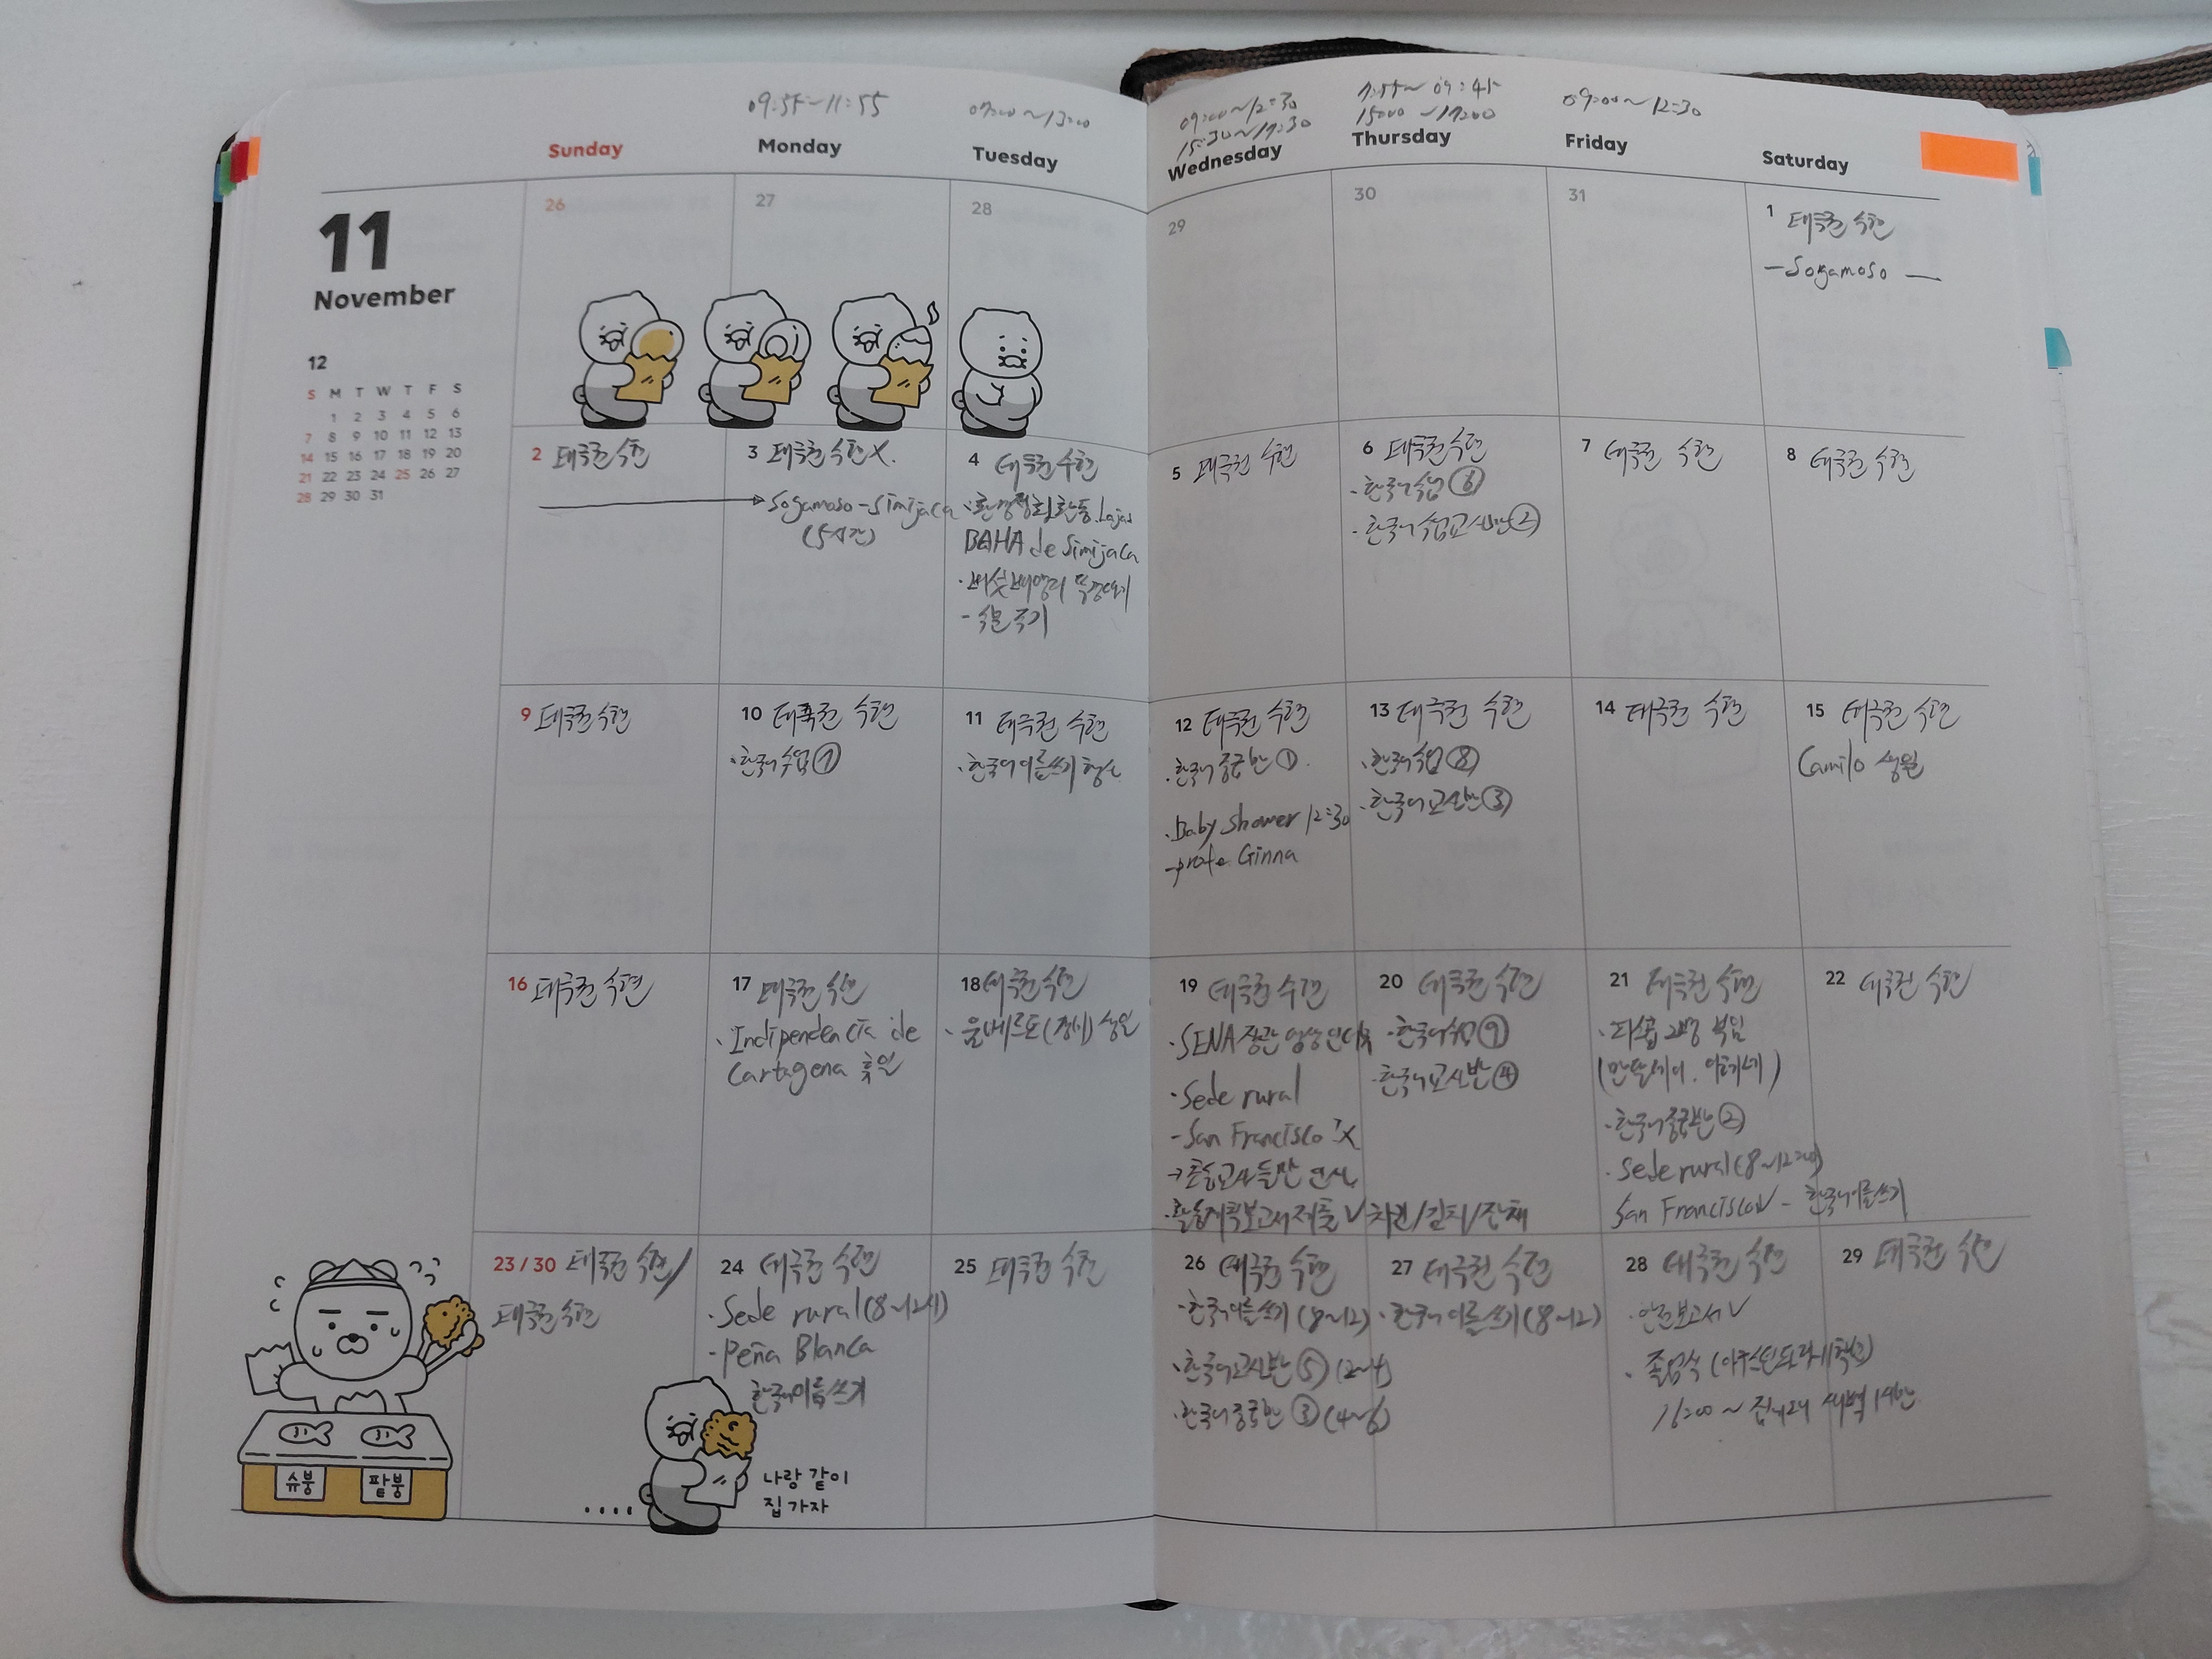 09:55~11:55
07:00~13:00
09:00~12:30
15:30~17:30
7:55~09:45
15:00~17:00
09:00~12:30
Sunday
Monday
Tuesday
Wednesday
Thursday
Friday
Saturday
11
November
12
S M T W T F S
1 2 3 4 5 6
7 8 9 10 11 12 13
14 15 16 17 18 19 20
21 22 23 24 25 26 27
28 29 30 31
26
27
28
29
30
31
1 태극권 수련
- Sogamoso -
2 태극권 수련
3 태극권 수련 X.
Sogamoso - Simijaca
(5시간)
4 태극권 수련
· 환경정화활동. Lajas
BAHA de Simijaca
- 식물 주기
5 태극권 수련
6 태극권 수련
· 한국어수업 ⑥
· 한국어수업교사반 ②
7 태극권 수련
8 태극권 수련
9 태극권 수련
10 태극권 수련
· 한국어수업 ⑦
11 태극권 수련
· 한국어이름쓰기 행사
12 태극권 수련
· 한국어중급반 ①.
· Baby Shower 12:30
- profe. Ginna
13 태극권 수련
· 한국어수업 ⑧
· 한국어교사반 ③
14 태극권 수련
15 태극권 수련
Camilo 생일
16 태극권 수련
17 태극권 수련
· Indipendencia de
Cartagena 휴일
18 태극권 수련
· 움베르토 생일
19 태극권 수련
· SENA 장관 영상
· Sede rural
- San Francisco X
인사
· 활동계획보고서제출 ✓
20 태극권 수련
· 한국어수업 ⑨
· 한국어교사반 ④
치킨/김치/잡채
21 태극권 수련
· 한국어중급반 ②
· Sede rural (8~12:00)
San Francisco ✓ - 한국어이름쓰기
22 태극권 수련
23 / 30 태극권 수련 /
태극권 수련
24 태극권 수련
· Sede rural (8~12시)
- Peña Blanca
한국어이름쓰기
25 태극권 수련
26 태극권 수련
· 한국어이름쓰기 (8~12)
· 한국어교사반 ⑤ (2~4)
· 한국어중급반 ③ (4~6)
27 태극권 수련
· 한국어이름쓰기 (8~12)
28 태극권 수련
· 안전보고서 ✓
· 졸업식
16:00 ~ 새벽 1시반
29 태극권 수련
슈붕
팥붕
....
나랑 같이
집 가자